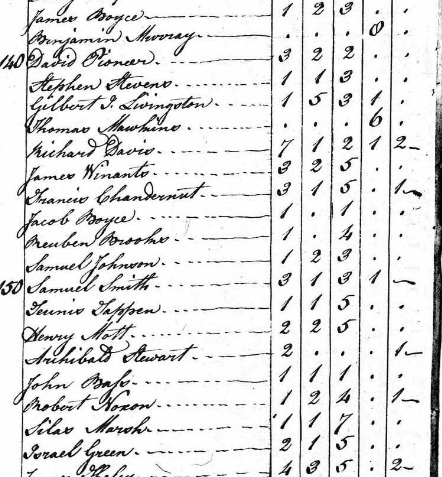 James Boyce 1 2 3 . .
Benjamin Murray . . . 8 .
140 David Pioneer 3 2 2 . .
Stephen Stevens 1 1 3 . .
Gilbert J. Livingston 1 5 3 1 .
Thomas Mawkins . . . 6 .
Richard Davis 7 1 2 1 2
James Winants 3 2 5 . .
Francis Chandernut 3 1 5 . 1
Jacob Boyce 1 . 1 . .
Reuben Brooks 1 . 4 . .
Samuel Johnson 1 2 3 . .
150 Samuel Smith 3 1 3 1
Teunis Tappen 1 1 5 . .
Henry Mott 2 2 5 . .
Archibald Stewart 2 . . . 1
John Bass 1 1 1 . .
Robert Noxon 1 2 4 . 1
Silas Marsh 1 1 7 . .
Israel Green 2 1 5 . .
4 3 5 . 2